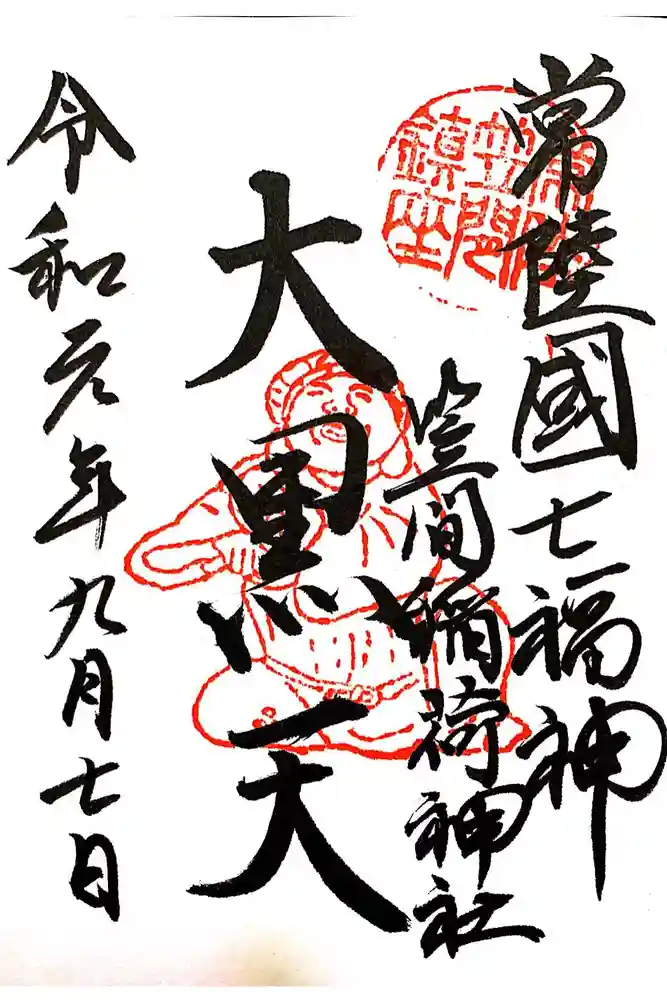 常陸國七福神
笠間稲荷神社
大黒天
令和元年九月七日
常陸
笠間
鎮座